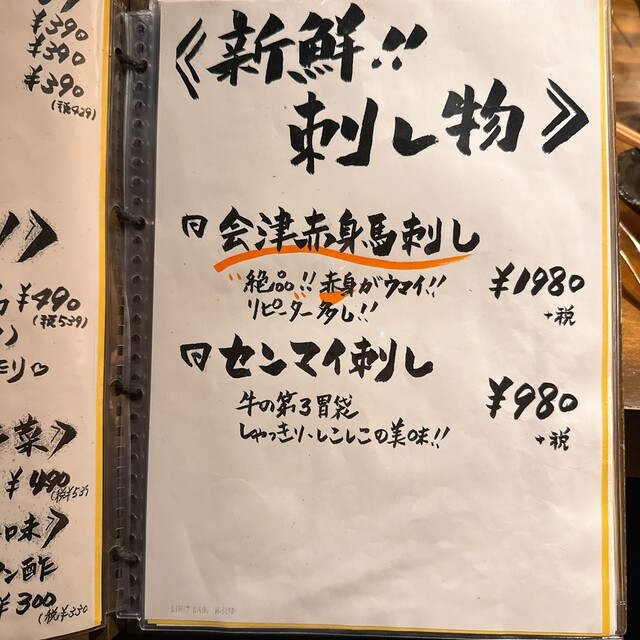 ¥390
¥390
¥390
(税429)
¥490
(税539)
菜》
¥490
(税¥539
味》
ン酢
¥300
(税¥330
《新鮮!!
刺し物》
会津赤身馬刺し
絶品!!赤身がウマイ!!
リピーター多し!!
¥1980
+税
センマイ刺し
牛の第3胃袋
しゃっきり、しこしこの美味!!
¥980
+税